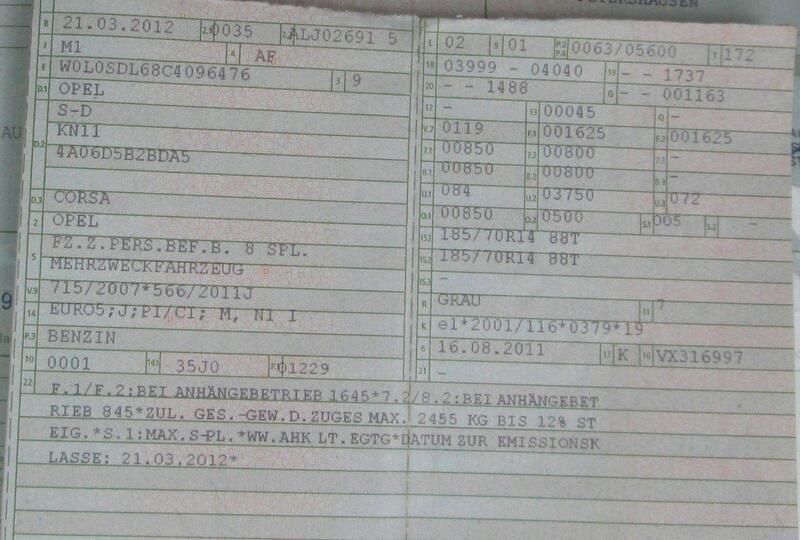 TERSHAUSEN
B 21.03.2012 2.1 0035 2.2 ALJ02691 5
J M1 4 AF
E W0L0SDL68C4096476 3 9
D.1 OPEL
S-D
D.2 KN11
4A06D5B2BDA5
D.3 CORSA
2 OPEL
5 FZ.Z.PERS.BEF.B. 8 SPL.
MEHRZWECKFAHRZEUG
V.9 715/2007*566/2011J
14 EURO5;J;PI/CI; M, N1 I
P.3 BENZIN
10 0001 14.1 35J0 P.1 01229
L 02 9 01 P.2 P.4 0063/05600 T 172
18 03999 - 04040 19 - - 1737
20 - - 1488 G - - 001163
12 - 13 00045 Q -
V.7 0119 F.1 001625 F.2 001625
7.1 00850 7.2 00800 7.3 -
8.1 00850 8.2 00800 8.3 -
U.1 084 U.2 03750 U.3 072
O.1 00850 O.2 0500 S.1 005 S.2 -
15.1 185/70R14 88T
15.2 185/70R14 88T
15.3 -
R GRAU 11 7
K e1*2001/116*0379*19
6 16.08.2011 17 K 16 VX316997
21 -
22 F.1/F.2:BEI ANHÄNGEBETRIEB 1645*7.2/8.2:BEI ANHÄNGEBET
RIEB 845*ZUL. GES.-GEW.D.ZUGES MAX. 2455 KG BIS 12% ST
EIG.*S.1:MAX.S-PL.*WW.AHK LT.EGTG*DATUM ZUR EMISSIONSK
LASSE: 21.03.2012*